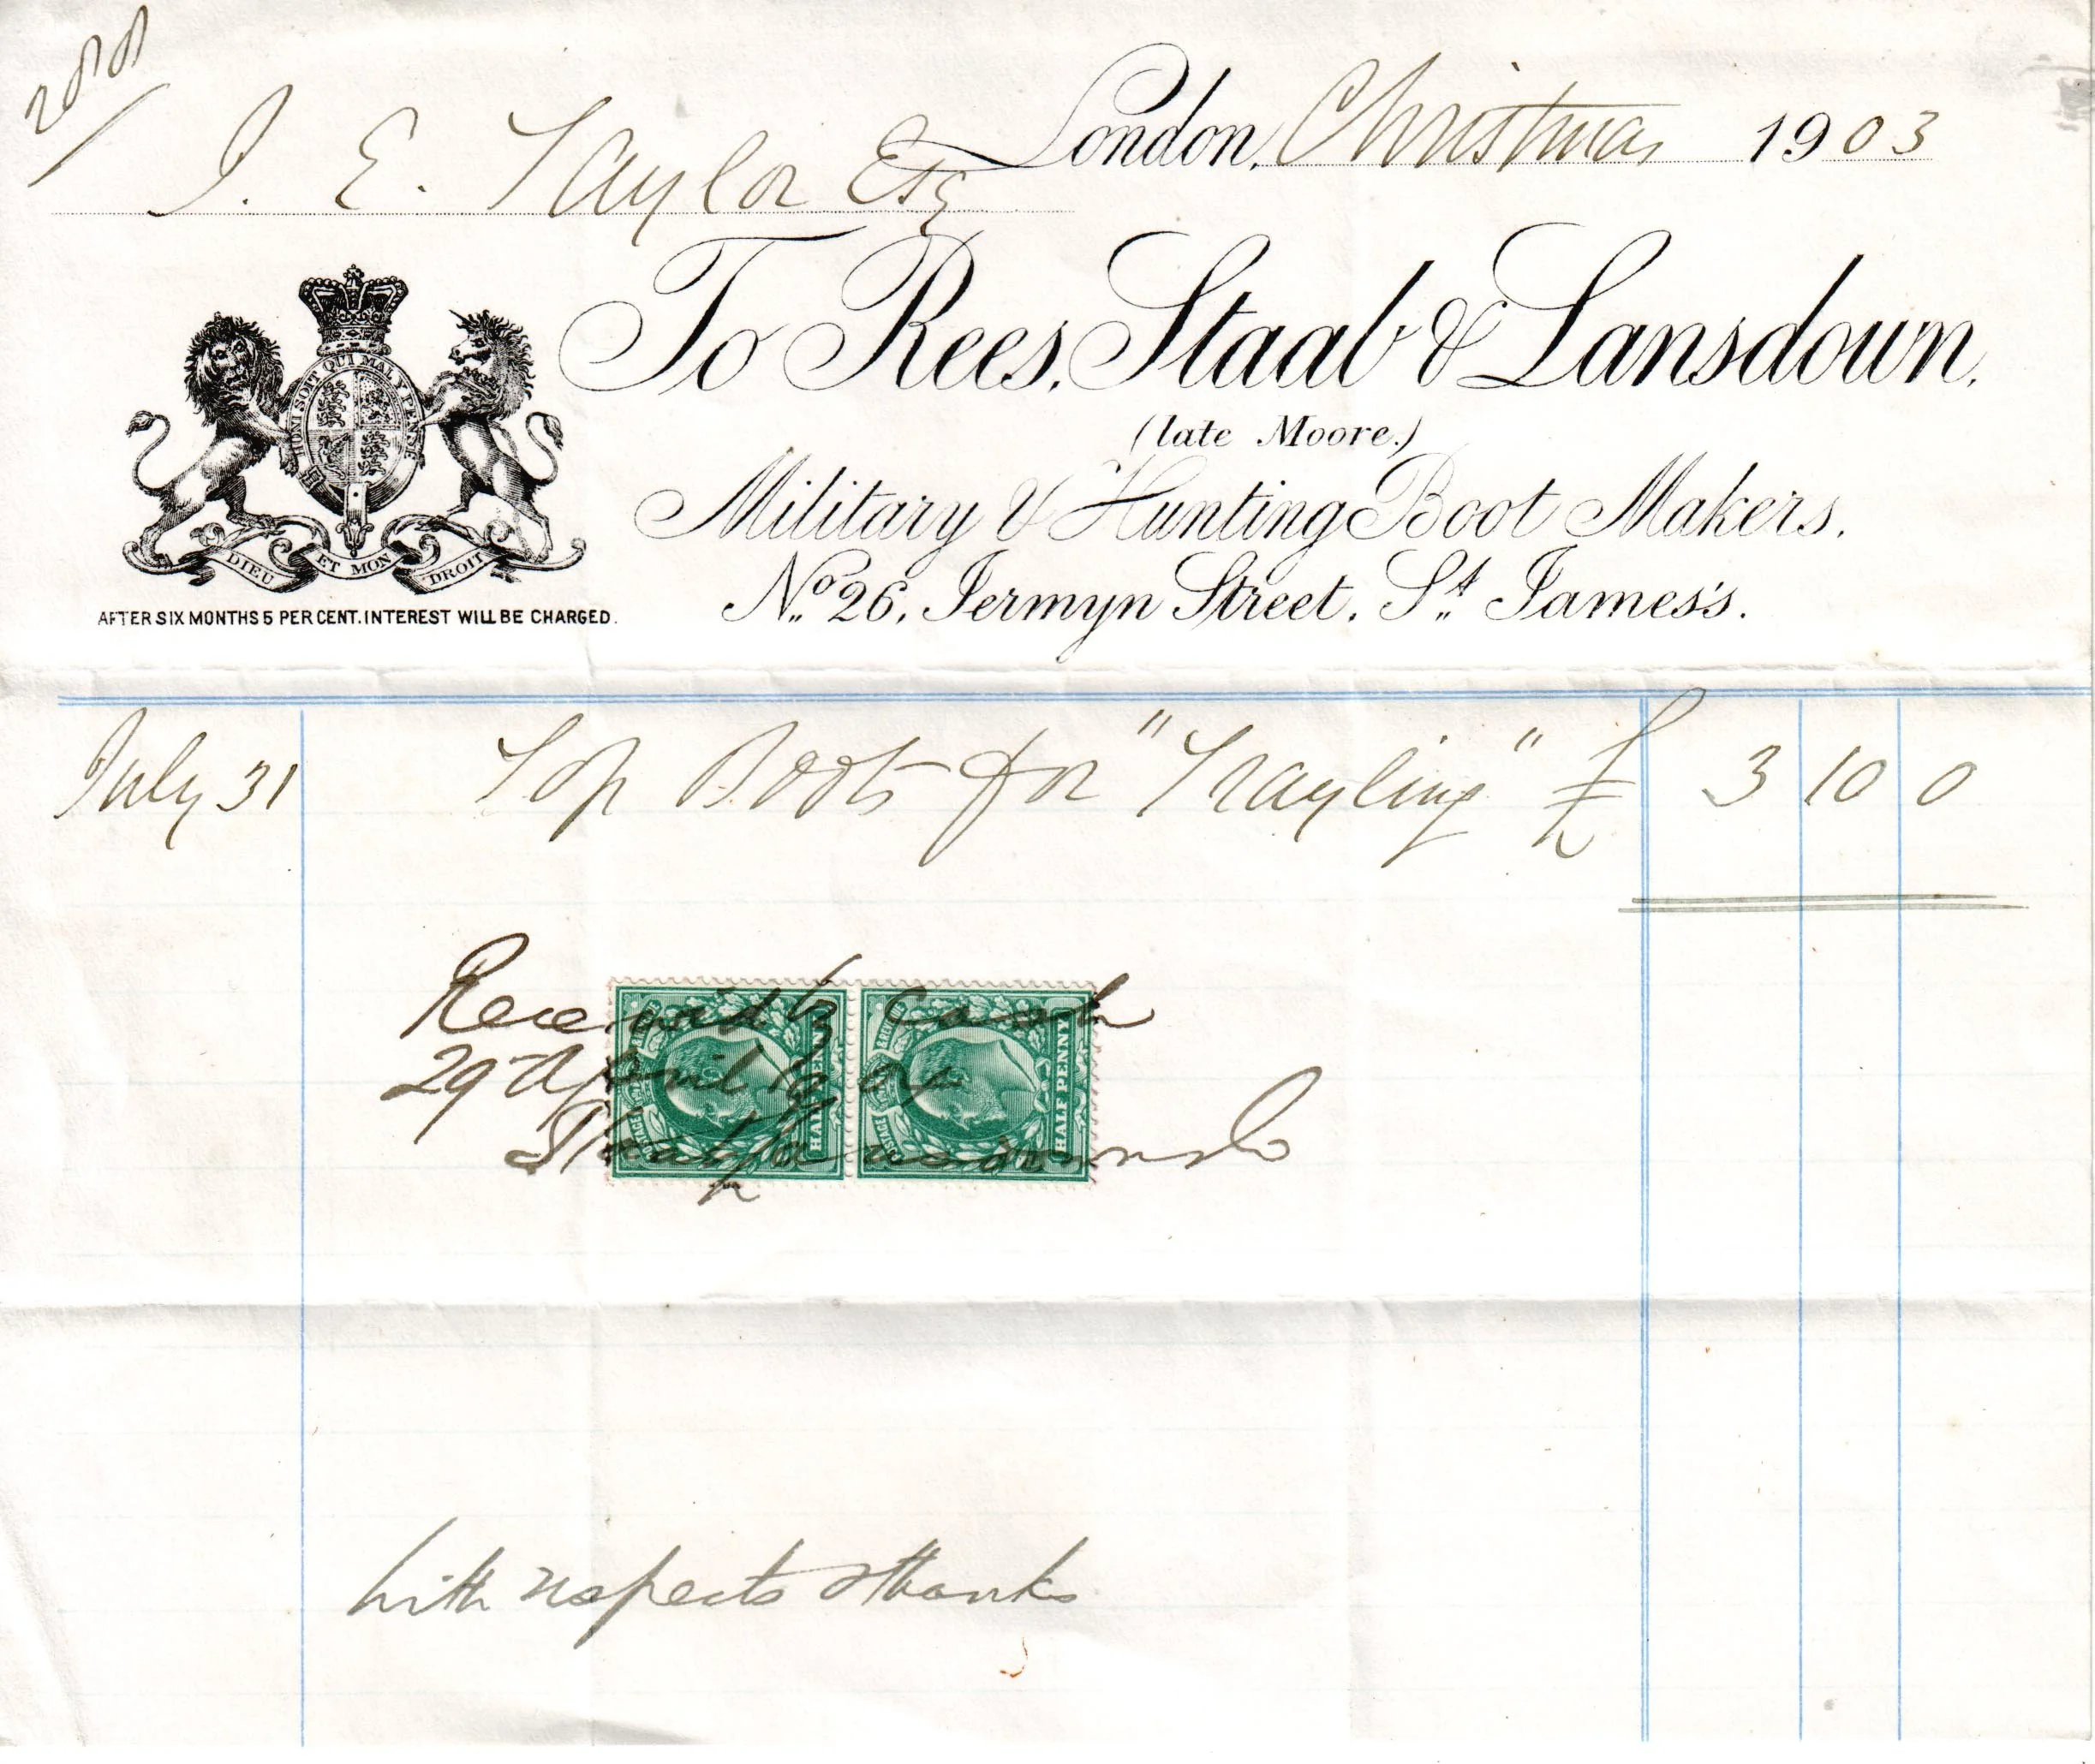 London, Christmas 1903
J. E. Taylor Esq
To Rees, Staab & Lansdown,
(late Moore.)
Military & Hunting Boot Makers.
No. 26, Jermyn Street, St. James's.
HONI SOIT QUI MAL Y PENSE
DIEU ET MON DROIT
AFTER SIX MONTHS 5 PER CENT. INTEREST WILL BE CHARGED.
July 31 Top Boots for "Trayling" £ 3 10 0
Received by Cash
29 April
POSTAGE & REVENUE HALF PENNY
POSTAGE & REVENUE HALF PENNY
With respects & thanks